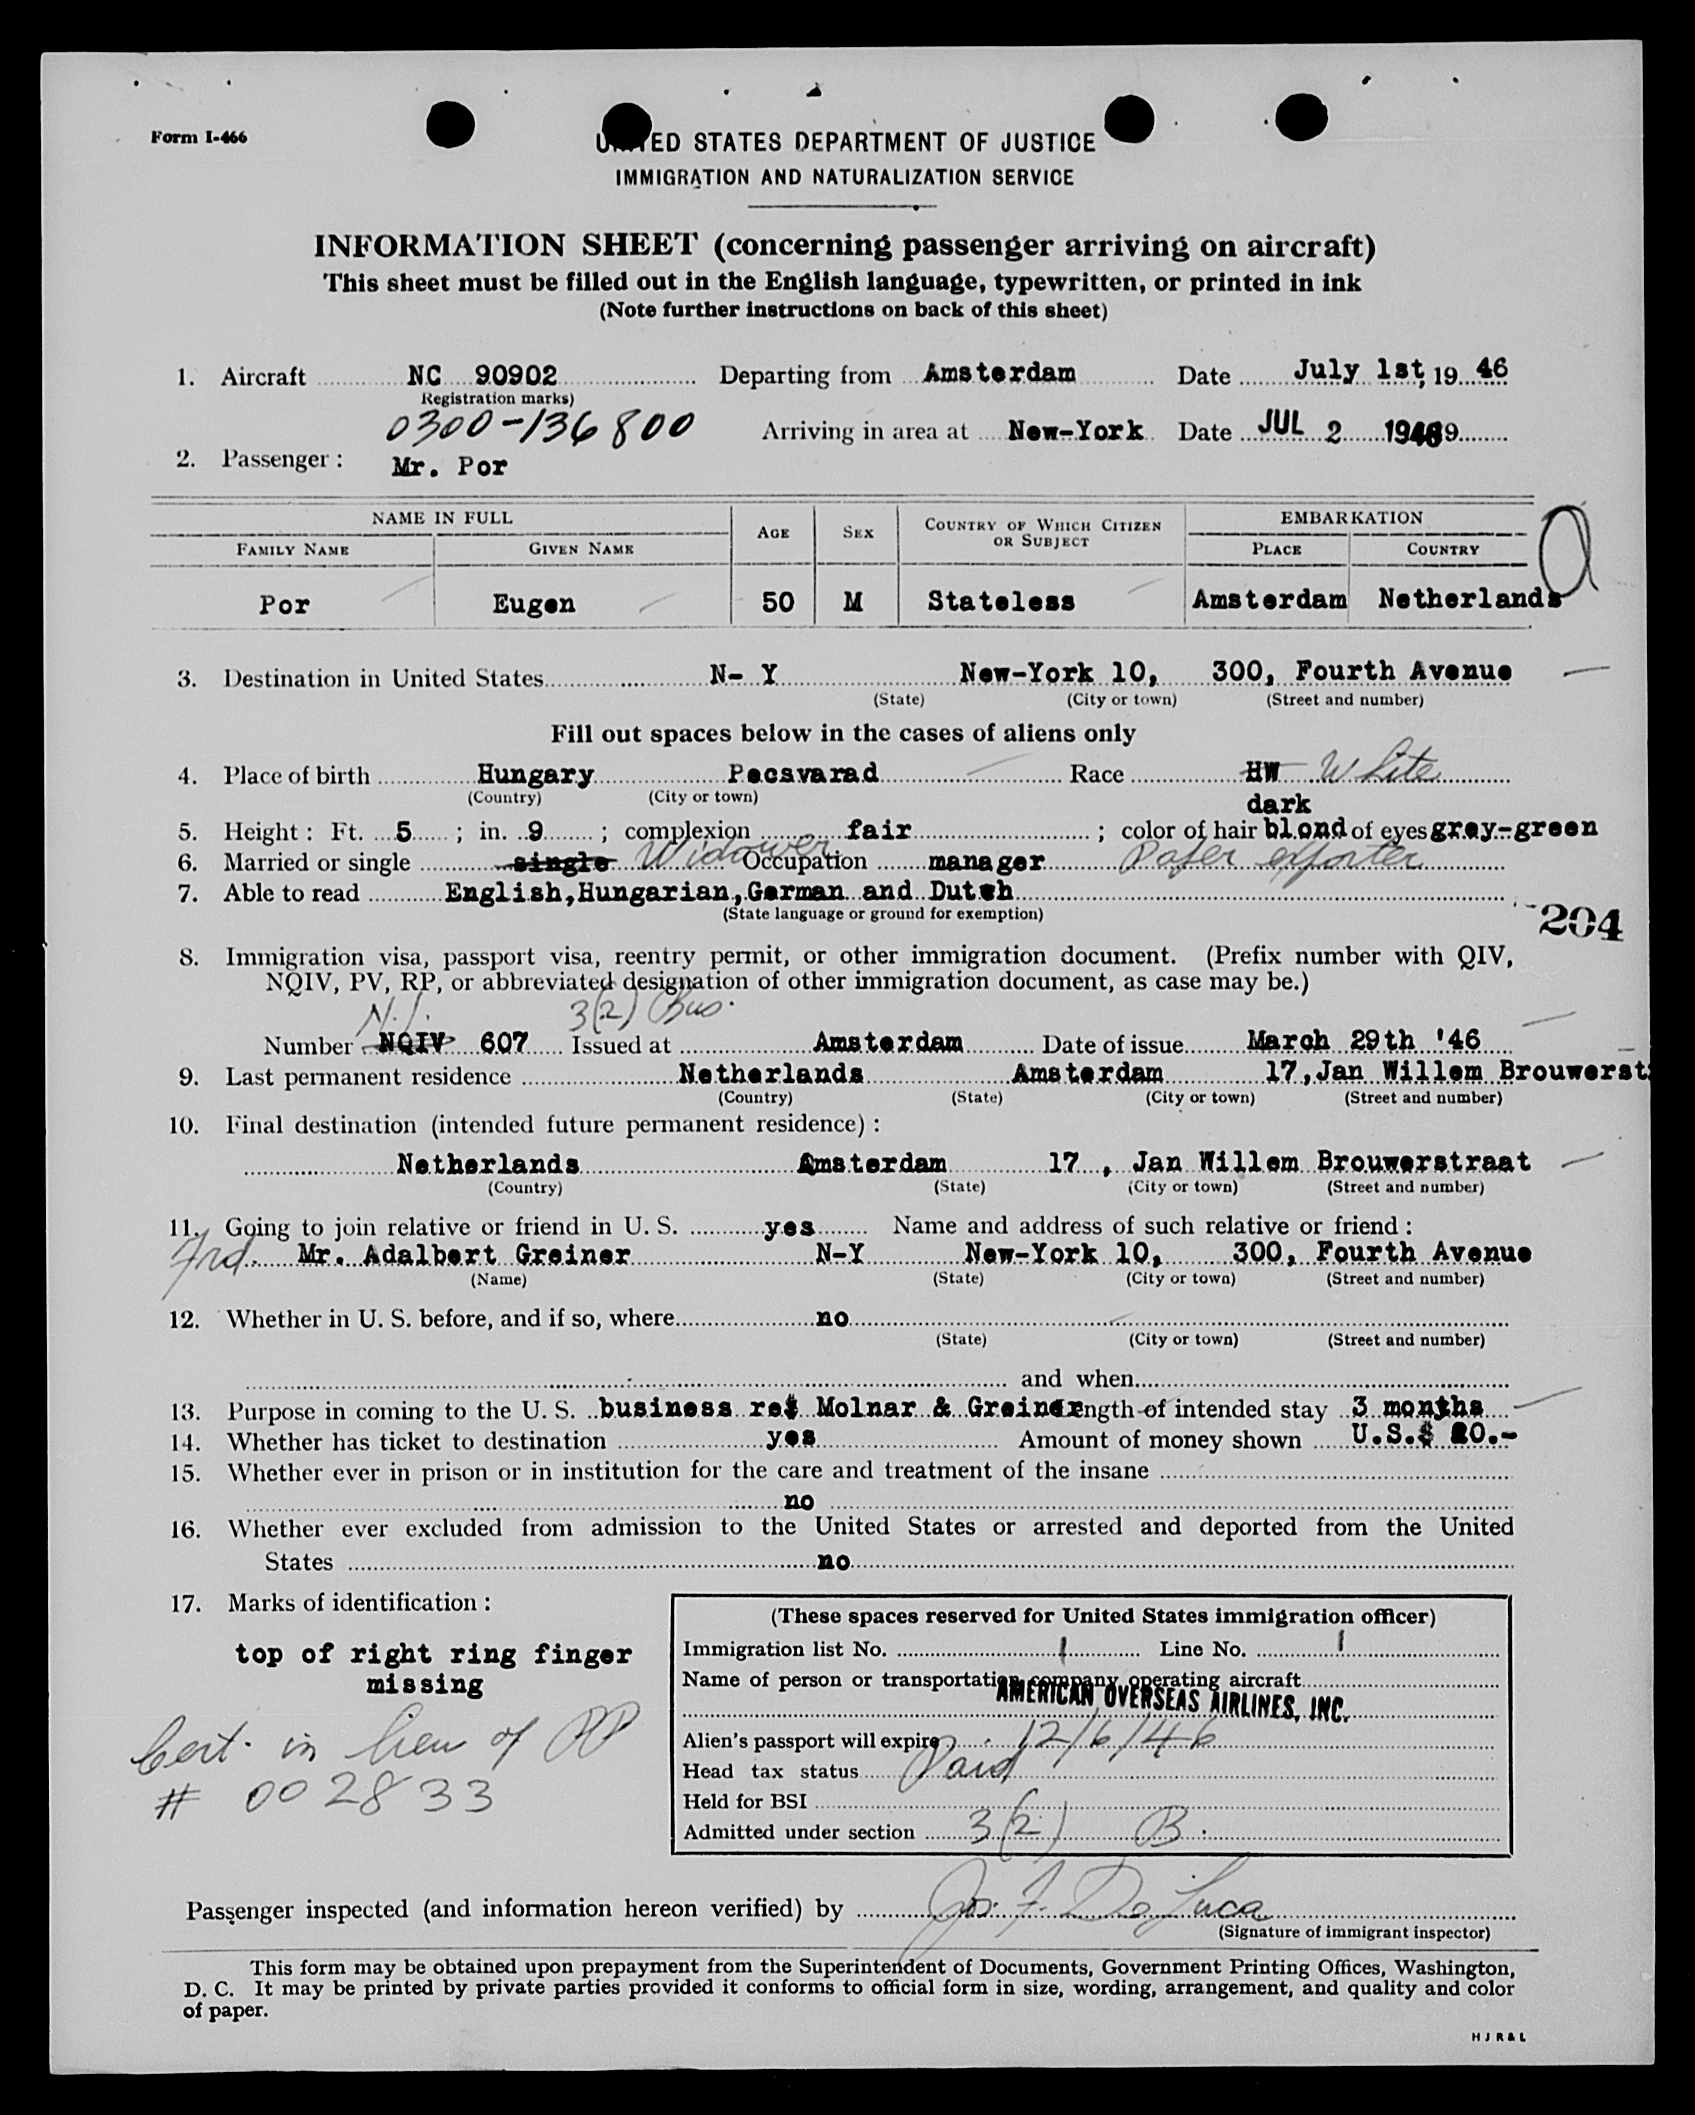 Form I-466
UNITED STATES DEPARTMENT OF JUSTICE
IMMIGRATION AND NATURALIZATION SERVICE
INFORMATION SHEET (concerning passenger arriving on aircraft)
This sheet must be filled out in the English language, typewritten, or printed in ink
(Note further instructions on back of this sheet)
1. Aircraft NC 90902 Departing from Amsterdam Date July 1st, 19 46
Registration marks)
0300-136800 Arriving in area at New-York Date JUL 2 1946
2. Passenger: Mr. Por
NAME IN FULL AGE SEX COUNTRY OF WHICH CITIZEN OR SUBJECT EMBARKATION
FAMILY NAME GIVEN NAME PLACE COUNTRY
Por Eugen 50 M Stateless Amsterdam Netherlands
3. Destination in United States N- Y New-York 10, 300, Fourth Avenue
(State) (City or town) (Street and number)
Fill out spaces below in the cases of aliens only
4. Place of birth Hungary Pecsvarad Race HW White
(Country) (City or town)
dark
5. Height: Ft. 5 ; in. 9 ; complexion fair ; color of hair blond of eyes grey-green
6. Married or single single Widower Occupation manager Paper exporter
7. Able to read English, Hungarian, German and Dutch
(State language or ground for exemption)
204
8. Immigration visa, passport visa, reentry permit, or other immigration document. (Prefix number with QIV,
NQIV, PV, RP, or abbreviated designation of other immigration document, as case may be.)
N.I. 3(2) Bus.
Number NQIV 607 Issued at Amsterdam Date of issue March 29th '46
9. Last permanent residence Netherlands Amsterdam 17, Jan Willem Brouwerst
(Country) (State) (City or town) (Street and number)
10. Final destination (intended future permanent residence) :
Netherlands Amsterdam 17 , Jan Willem Brouwerstraat
(Country) (State) (City or town) (Street and number)
11. Going to join relative or friend in U. S. yes Name and address of such relative or friend :
Frd. Mr. Adalbert Greiner N-Y New-York 10, 300, Fourth Avenue
(Name) (State) (City or town) (Street and number)
12. Whether in U. S. before, and if so, where no
(State) (City or town) (Street and number)
and when
13. Purpose in coming to the U. S. business re: Molnar & Greiner Length of intended stay 3 months
14. Whether has ticket to destination yes Amount of money shown U.S.$ 20.-
15. Whether ever in prison or in institution for the care and treatment of the insane
no
16. Whether ever excluded from admission to the United States or arrested and deported from the United
States no
17. Marks of identification :
top of right ring finger
missing
Cert. in lieu of PP
# 002833
(These spaces reserved for United States immigration officer)
Immigration list No. 1 Line No. 1
Name of person or transportation company operating aircraft
AMERICAN OVERSEAS AIRLINES, INC.
Alien's passport will expire 12/6/46
Head tax status Paid
Held for BSI
Admitted under section 3(2) B.
Passenger inspected (and information hereon verified) by Jos. F. De Luca
(Signature of immigrant inspector)
This form may be obtained upon prepayment from the Superintendent of Documents, Government Printing Offices, Washington,
D. C. It may be printed by private parties provided it conforms to official form in size, wording, arrangement, and quality and color
of paper.
H J R & L